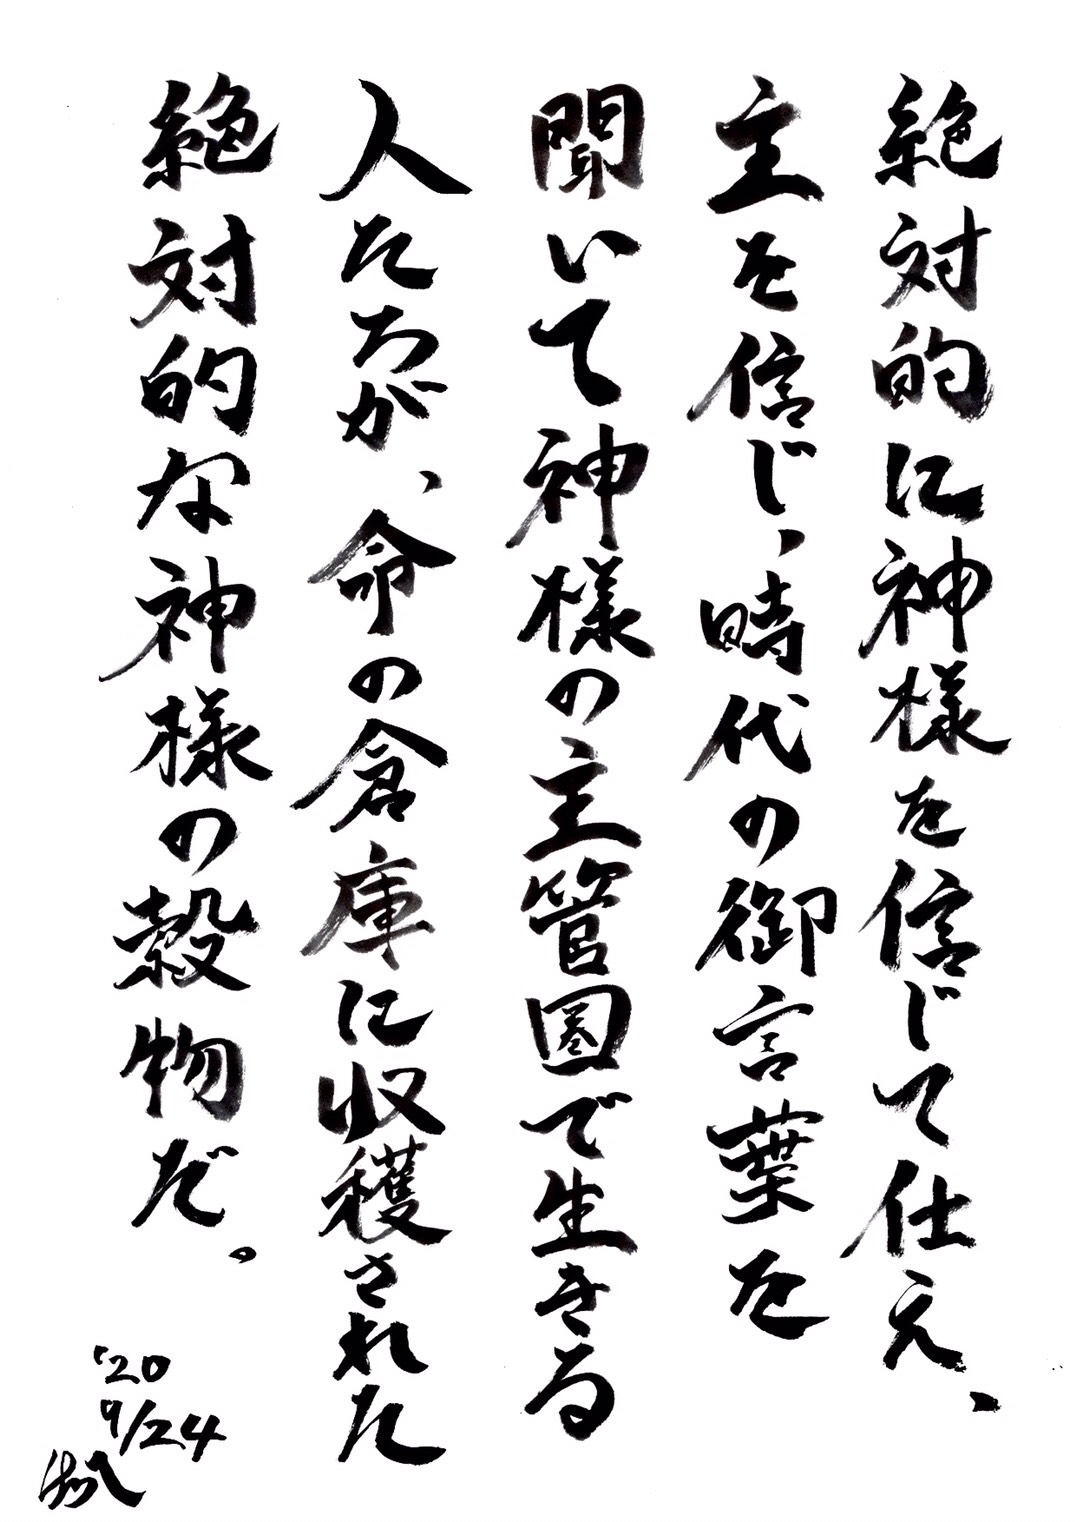 絶対的に神様を信じて仕え、
主を信じ、時代の御言葉を
聞いて神様の主管圏で生きる
人たちが、命の倉庫に収穫された
絶対的な神様の穀物だ。
'20
9/24